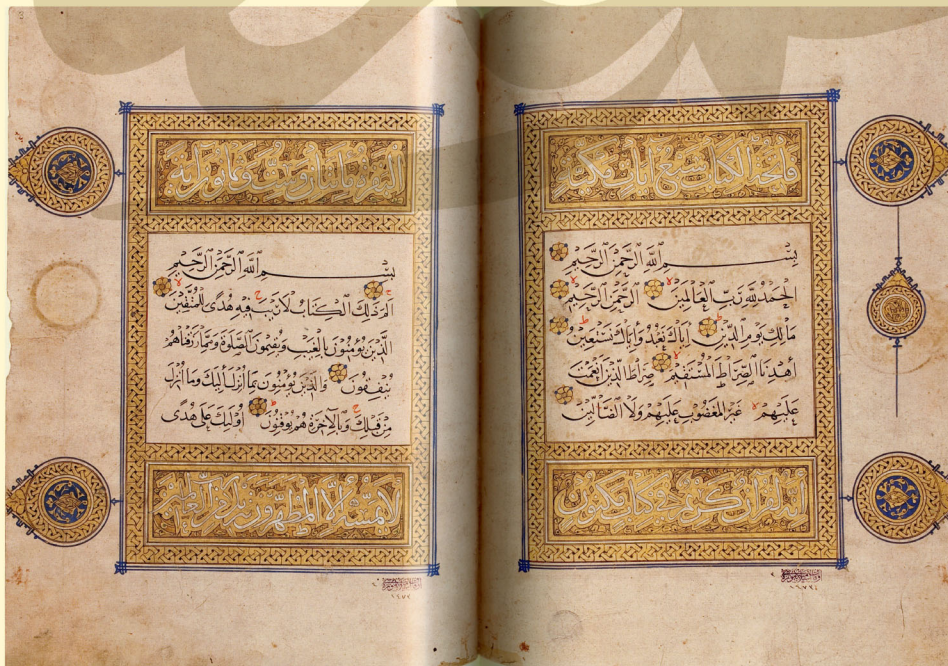 فاتحة الكتاب سبع آيات مكية
بِسْمِ اللَّهِ الرَّحْمَٰنِ الرَّحِيمِ
الْحَمْدُ لِلَّهِ رَبِّ الْعَالَمِينَ الرَّحْمَٰنِ الرَّحِيمِ
مَالِكِ يَوْمِ الدِّينِ إِيَّاكَ نَعْبُدُ وَإِيَّاكَ نَسْتَعِينُ
أهْدِنَا الصِّرَاطَ الْمُسْتَقِيمَ صِرَاطَ الَّذِينَ أَنْعَمْتَ
عَلَيْهِمْ غَيْرِ الْمَغْضُوبِ عَلَيْهِمْ وَلَا الضَّالِّينَ
إنه لقرآن كريم في كتاب مكنون
البقرة وست وثمانون آية
بِسْمِ اللَّهِ الرَّحْمَٰنِ الرَّحِيمِ
الم ذَلِكَ الْكِتَابُ لَا رَيْبَ فِيهِ هُدًى لِلْمُتَّقِينَ
الَّذِينَ يُؤْمِنُونَ بِالْغَيْبِ وَيُقِيمُونَ الصَّلَوٰةَ وَمِمَّا رَزَقْنَاهُمْ
يُنْفِقُونَ وَالَّذِينَ يُؤْمِنُونَ بِمَا أُنْزِلَ إِلَيْكَ وَمَا أُنْزِلَ
مِنْ قَبْلِكَ وَبِالْآخِرَةِ هُمْ يُوقِنُونَ أُولَئِكَ عَلَى هُدًى
لا يمسه إلا المطهرون تنزيل من رب العالمين